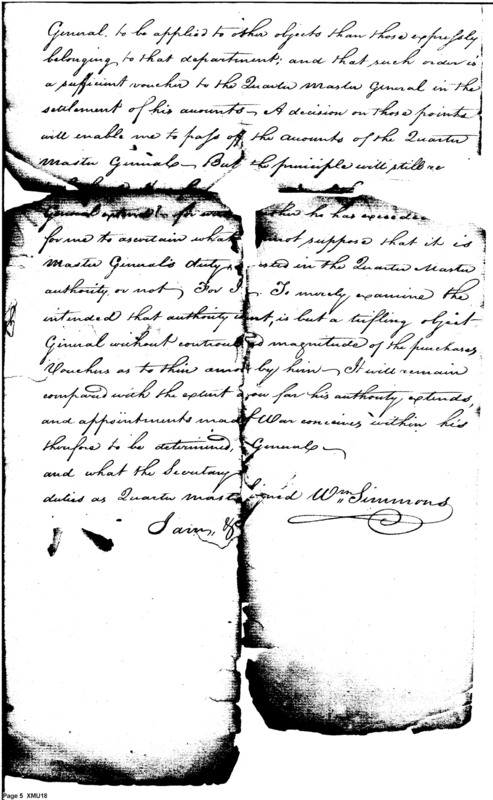 General to be applied to other objects than those expressly
belonging to that department; and that such order is
a sufficient voucher to the Quarter Master General in the
settlement of his accounts — A decision on those points
will enable me to pass off the accounts of the Quarter
Master General — But the principle will still re
General extend? for whether he has exceeded
for me to ascertain what not suppose that it is
Master General's duty, vested in the Quarter Master
authority or not — For I To merely examine the
intended that authority is but a trifling object
General without control magnitude of the purchases
Vouchers as to their amo by him — It will remain
compared with the extent how far his authority extends,
and appointments made of War conceives within his
therefore to be determined, General —
and what the Secretary
duties as Quarter mast signed Wm Simmons
I am, &c
Page 5 XMU18